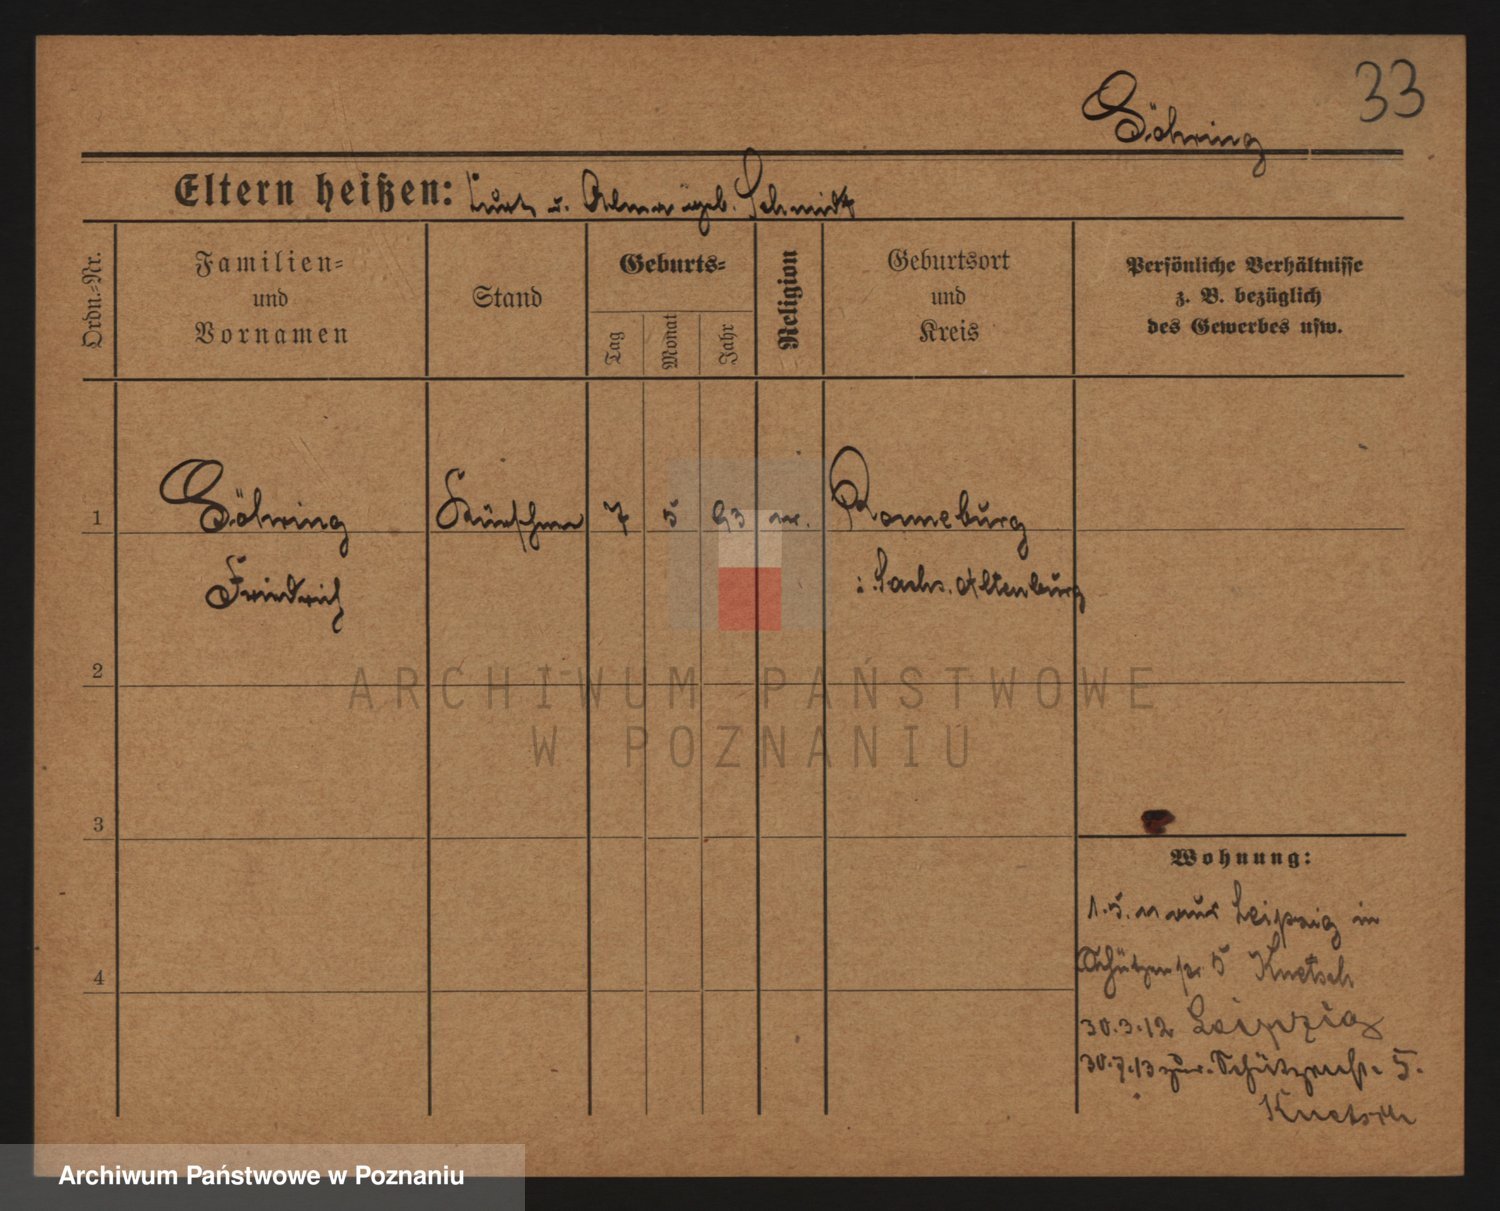 33
Göhring
Eltern heißen: Curt u. Alma geb. Schmidt
Ordn.=Nr.
Familien=
und
Vornamen
Stand
Geburts=
Tag
Monat
Jahr
Religion
Geburtsort
und
Kreis
Persönliche Verhältnisse
z. B. bezüglich
des Gewerbes usw.
1
Göhring
Friedrich
Kürschner
7
5
93
ev.
Ronneburg
i. Sachs. Altenburg
2
ARCHIWUM PAŃSTWOWE
W POZNANIU
3
4
Wohnung:
1.5.11 aus Leipzig in
Schützenstr. 5 Knetsch
30.3.12 Leipzig
30.7.13 zur. Schützenstr. 5.
Knetsch
Archiwum Państwowe w Poznaniu